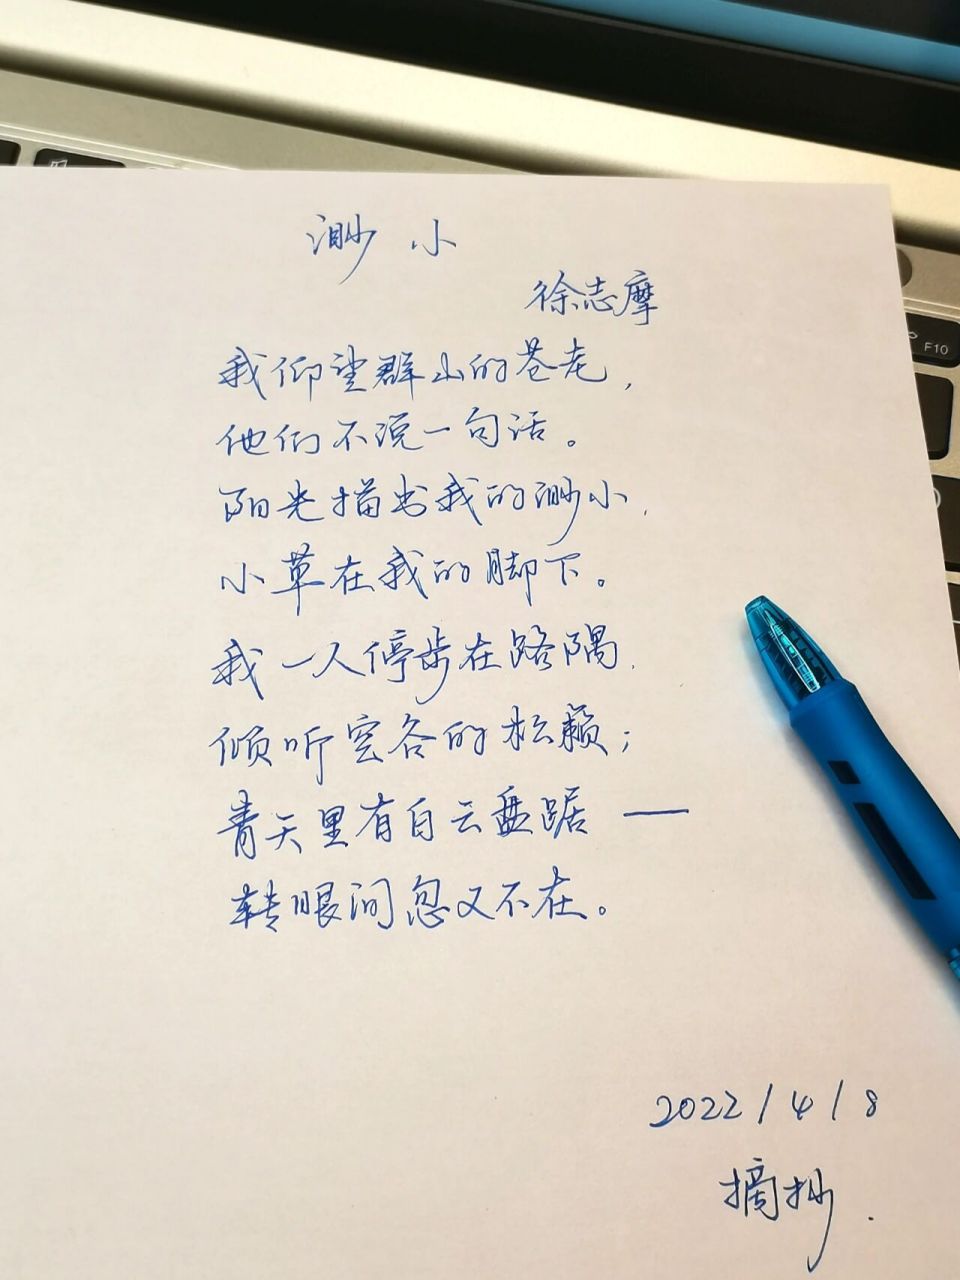 渺小
徐志摩
我仰望群山的苍老，
他们不说一句话。
阳光描出我的渺小，
小草在我的脚下。
我一人停步在路隅，
倾听空谷的松籁；
青天里有白云盘踞——
转眼间忽又不在。
2022/4/8
摘抄.
F10